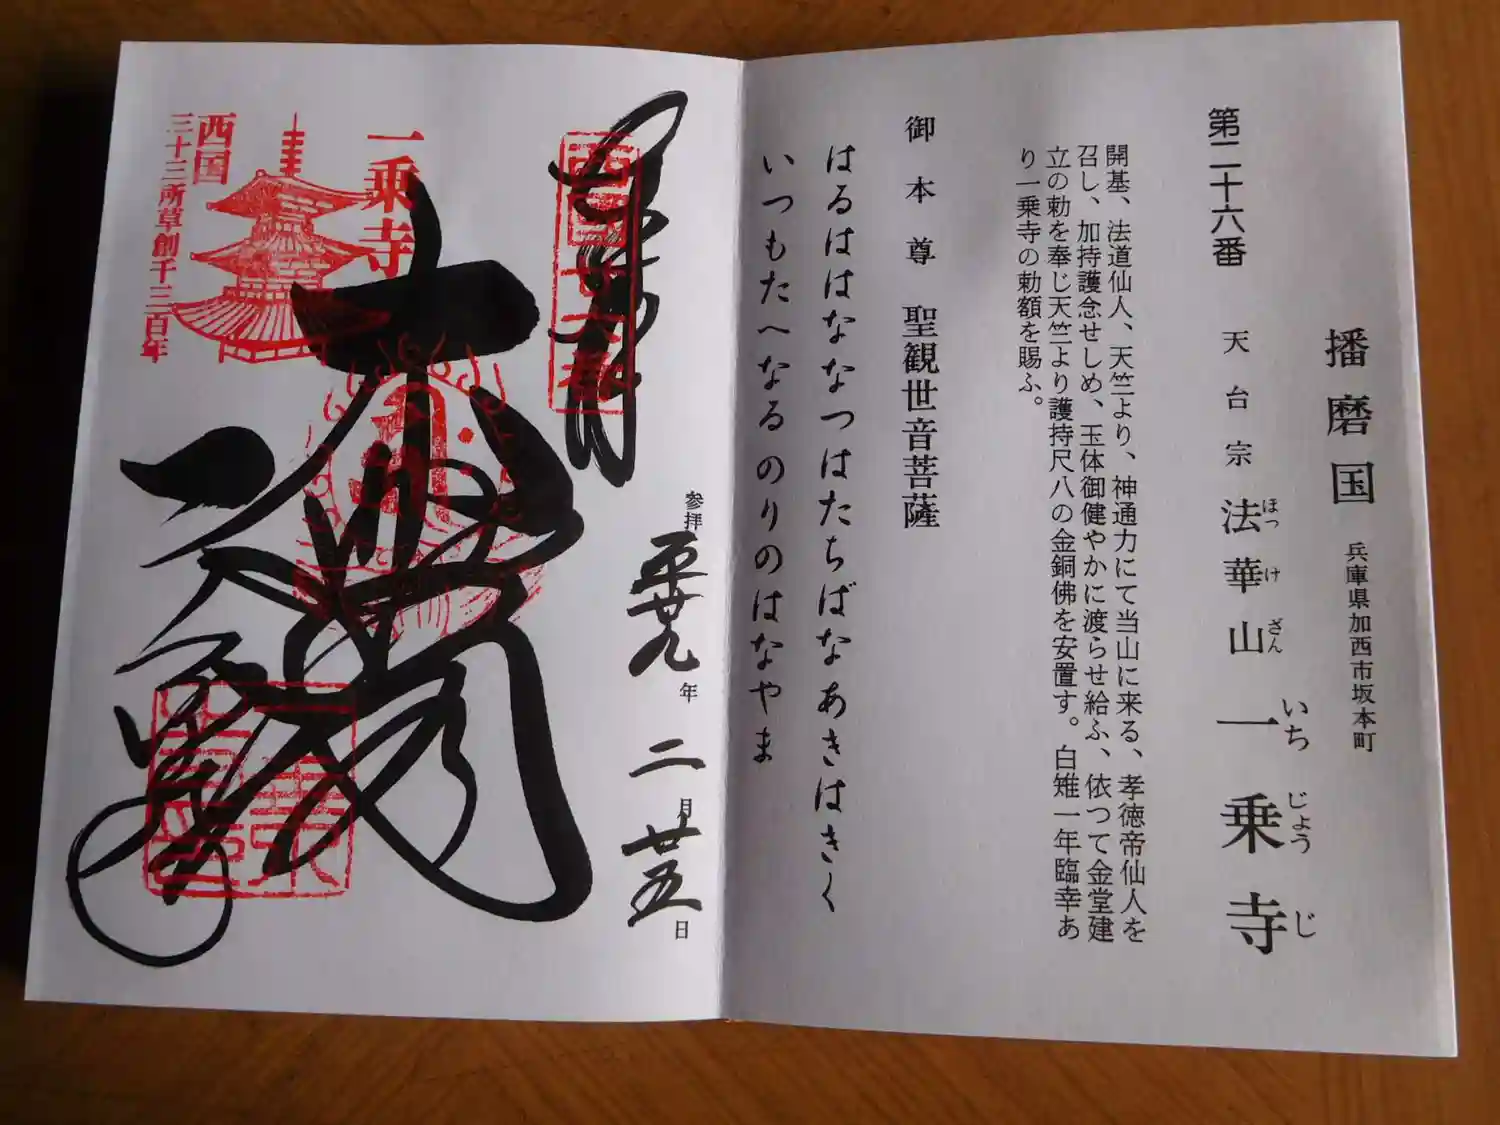 播磨国 兵庫県加西市坂本町
第二十六番 天台宗 法華山 一乗寺
ほっ け ざん いち じょう じ
開基、法道仙人、天竺より、神通力にて当山に来る、孝徳帝仙人を
召し、加持護念せしめ、玉体御健やかに渡らせ給ふ、依つて金堂建
立の勅を奉じ天竺より護持尺八の金銅佛を安置す。白雉一年臨幸あ
り一乗寺の勅額を賜ふ。
御本尊 聖観世音菩薩
はるははななつはたちばなあきはきく
いつもたへなるのりのはなやま
参拝 平廿九年 二月廿五日
西国廿六番
奉拝
一乗寺
西国
三十三所草創千三百年